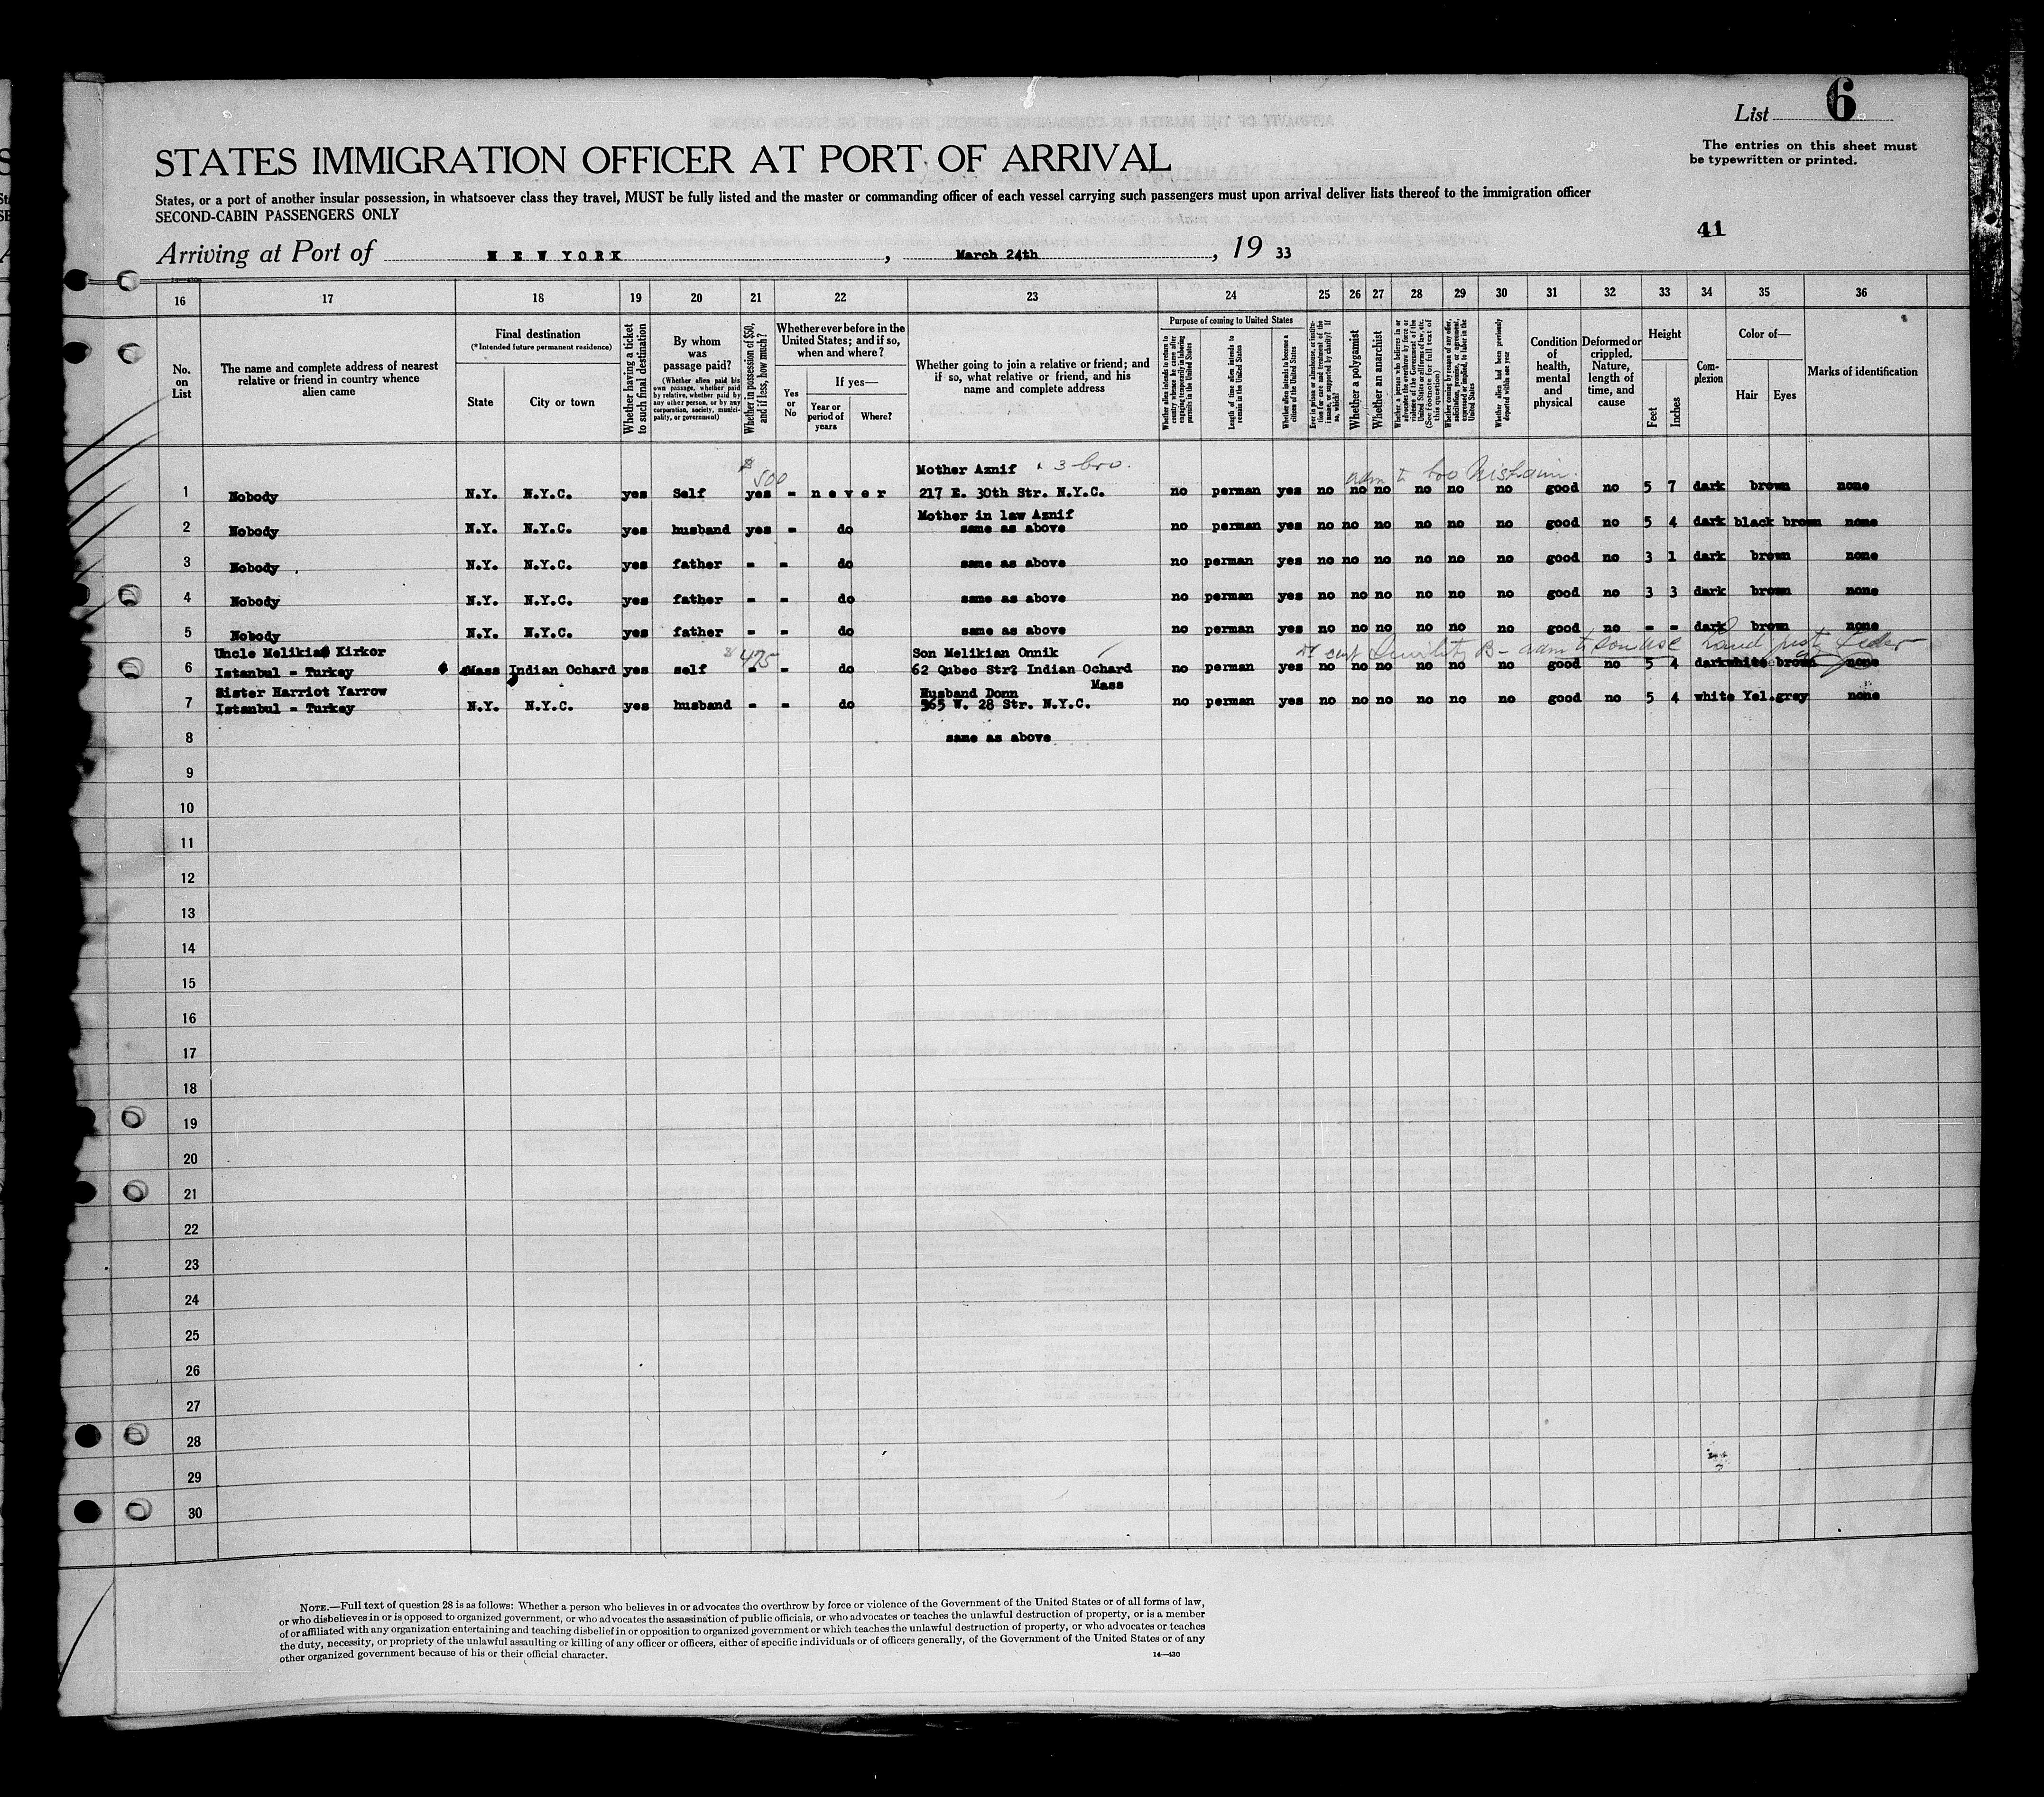 List 6
The entries on this sheet must
be typewritten or printed.
STATES IMMIGRATION OFFICER AT PORT OF ARRIVAL
States, or a port of another insular possession, in whatsoever class they travel, MUST be fully listed and the master or commanding officer of each vessel carrying such passengers must upon arrival deliver lists thereof to the immigration officer
SECOND-CABIN PASSENGERS ONLY
41
Arriving at Port of NEW YORK, March 24th, 19 33
16 17 18 19 20 21 22 23 24 25 26 27 28 29 30 31 32 33 34 35 36
No. on List
The name and complete address of nearest relative or friend in country whence alien came
Final destination
(*Intended future permanent residence)
State
City or town
Whether having a ticket to such final destination
By whom was passage paid?
(Whether alien paid his own passage, whether paid by relative, whether paid by any other person, or by any corporation, society, municipality, or government)
Whether in possession of $50, and if less, how much?
Whether ever before in the United States; and if so, when and where?
Yes or No
If yes—
Year or period of years
Where?
Whether going to join a relative or friend; and if so, what relative or friend, and his name and complete address
Purpose of coming to United States
Whether alien intends to return to country whence he came after engaging temporarily in laboring pursuits in the United States
Length of time alien intends to remain in the United States
Whether alien intends to become a citizen of the United States
Ever in prison or almshouse, or institution for care and treatment of the insane, or supported by charity? If so, which?
Whether a polygamist
Whether an anarchist
Whether a person who believes in or advocates the overthrow by force or violence of the Government of the United States or all forms of law, etc. (See footnote for full text of this question)
Whether coming by reason of any offer, solicitation, promise, or agreement, expressed or implied, to labor in the United States
Whether alien had been previously deported within one year
Condition of health, mental and physical
Deformed or crippled. Nature, length of time, and cause
Height
Feet
Inches
Complexion
Color of—
Hair
Eyes
Marks of identification
Mother Aznif & 3 bro.
$ 500
1 Nobody N.Y. N.Y.C. yes Self yes - never 217 E. 30th Str. N.Y.C. no perman yes no no no no no no good no 5 7 dark brown none
Mother in law Aznif
2 Nobody N.Y. N.Y.C. yes husband yes - do same as above no perman yes no no no no no no good no 5 4 dark black brown none
3 Nobody N.Y. N.Y.C. yes father - - do same as above no perman yes no no no no no no good no 3 1 dark brown none
4 Nobody N.Y. N.Y.C. yes father - - do same as above no perman yes no no no no no no good no 3 3 dark brown none
5 Nobody N.Y. N.Y.C. yes father - - do same as above no perman yes no no no no no no good no - - dark brown none
Uncle Melikian Kirkor $475 Son Melikian Onnik
6 Istanbul - Turkey Mass Indian Ochard yes self - - do 62 Qubec Str? Indian Ochard no perman yes no no no no no no good no 5 4 dark white brown none
Mass
Sister Harriot Yarrow Husband Donn
7 Istanbul - Turkey N.Y. N.Y.C. yes husband - - do 365 W. 28 Str. N.Y.C. no perman yes no no no no no no good no 5 4 white Yel. grey none
8 same as above
9
10
11
12
13
14
15
16
17
18
19
20
21
22
23
24
25
26
27
28
29
30
NOTE.—Full text of question 28 is as follows: Whether a person who believes in or advocates the overthrow by force or violence of the Government of the United States or of all forms of law,
or who disbelieves in or is opposed to organized government, or who advocates the assassination of public officials, or who advocates or teaches the unlawful destruction of property, or is a member
of or affiliated with any organization entertaining and teaching disbelief in or opposition to organized government or which teaches the unlawful destruction of property, or who advocates or teaches
the duty, necessity, or propriety of the unlawful assaulting or killing of any officer or officers, either of specific individuals or of officers generally, of the Government of the United States or of any
other organized government because of his or their official character.
14—430